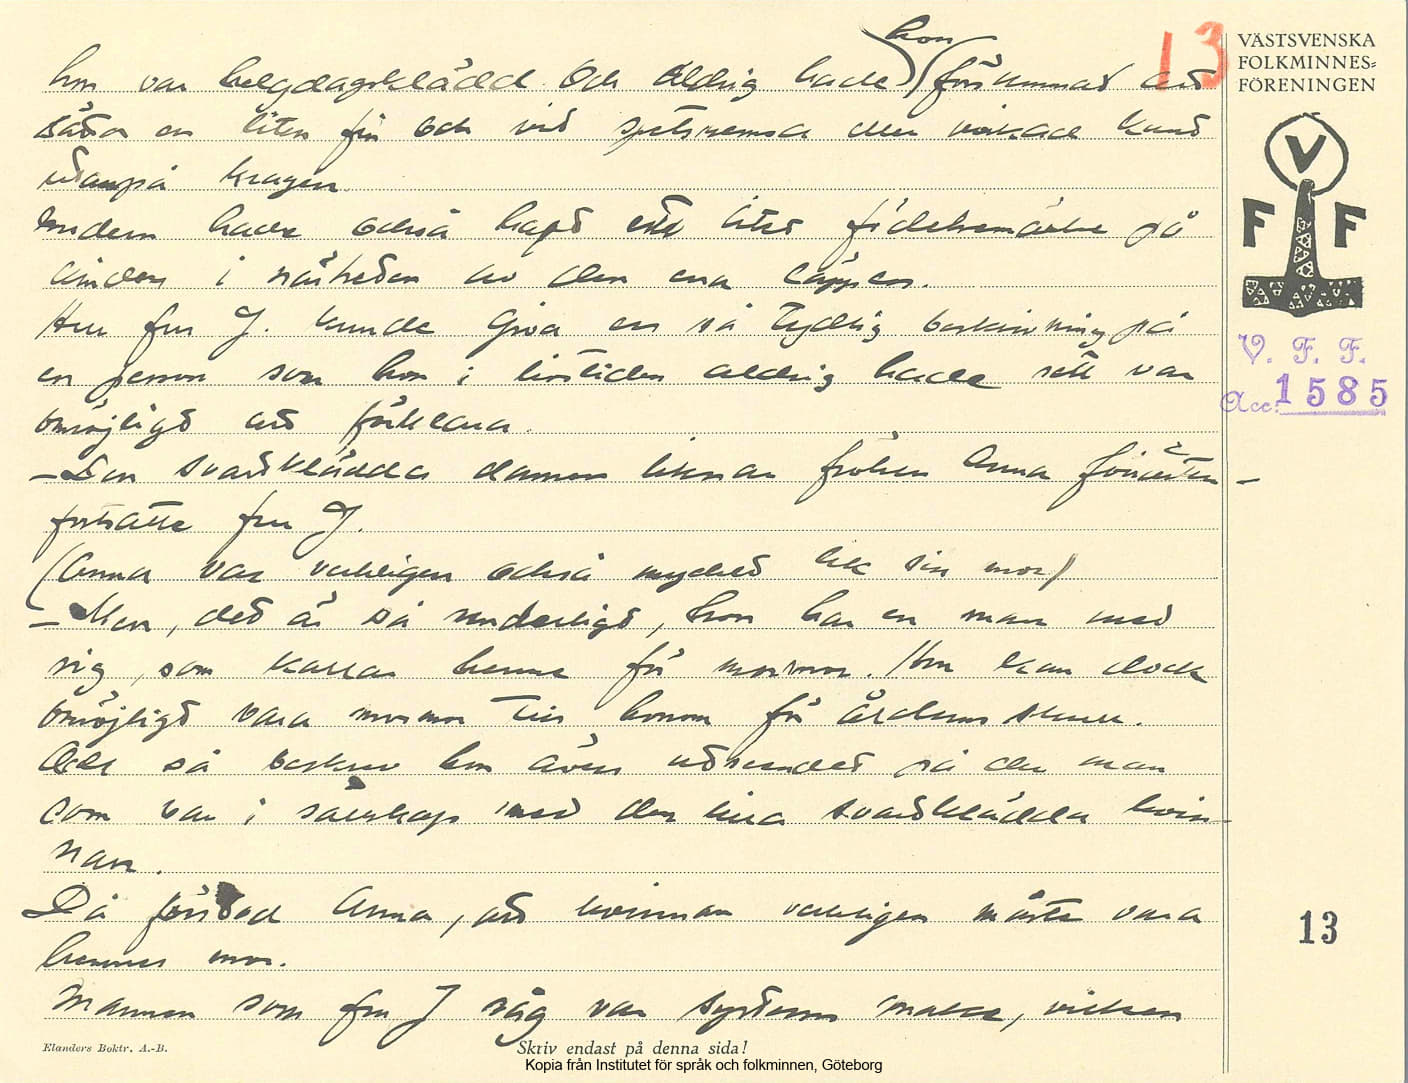 hon
hon var helgdagsklädd. Och aldrig hade försummat att
sätta en liten fin och vit spetsremsa eller virkad kant
utanpå kragen.
Modern hade också haft ett litet födelsemärke på
kinden i närheten av den ena läppen.
Hur fru J. kunde giva en så tydlig beskrivning på
en person som hon i livstiden aldrig hade sett var
omöjligt att förklara.
– Den svartklädda damen liknar fröken Anna förresten –
fortsatte fru J.
(Anna var verkligen också mycket lik sin mor)
– Men, det är så underligt, hon har en man med
sig, som kallar henne för mormor. Hon kan dock
omöjligt vara mormor till honom för ålderns skull.
Och så beskrev hon även utseendet på den man
som var i sällskap med den lilla svartklädda kvin-
nan.
Då förstod Anna, att kvinnan verkligen måste vara
hennes mor.
Mannen som fru J såg var systerns make, vilken
13
VÄSTSVENSKA
FOLKMINNES=
FÖRENINGEN
V
F F
V. F. F.
Acc: 1585
13
Elanders Boktr. A.-B.
Skriv endast på denna sida!
Kopia från Institutet för språk och folkminnen, Göteborg